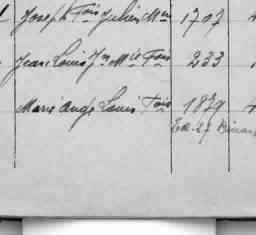 Joseph Fois Julien Mie 1707
Jean Louis Jn Mle Fois 233
Marie Ange Louis Fois 1839